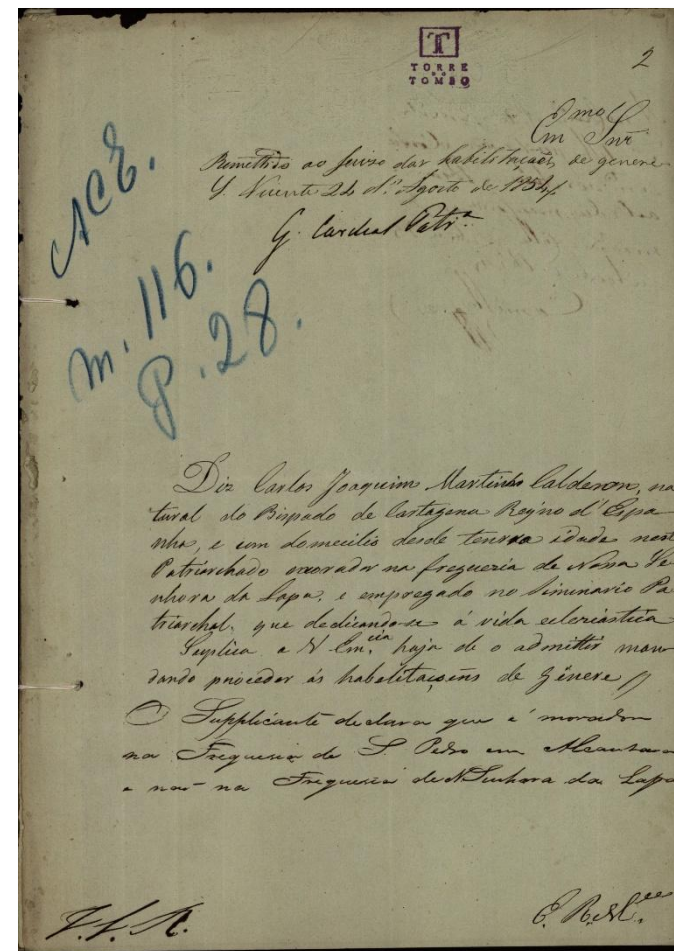 T
TORRE
DO
TOMBO
2
Emo Snr
Remettido ao juizo das habilitações de genere
S. Vicente 24 d'Agosto de 1854
G. Cardeal Patr.a
ACE.
m. 116.
P. 28.
Diz Carlos Joaquim Martinho Calderon, na
tural do Bispado de Cartagena Reyno d'Espa
nha, e com domecilio desde tenrra idade neste
Patriarchado morador na freguezia de Nossa Se
nhora da Lapa, e empregado no Siminario Pa
triarchal, que dedicando-se á vida eclesiástica
Supplica a V Em.cia haja de o admittir man
dando proceder ás habelitaçoens de Génere
O Supplicante declara que é morador
na Freguesia de S. Pedro em Alcantara
e não na Freguesia de N Senhora da Lapa
E. R. M.ce